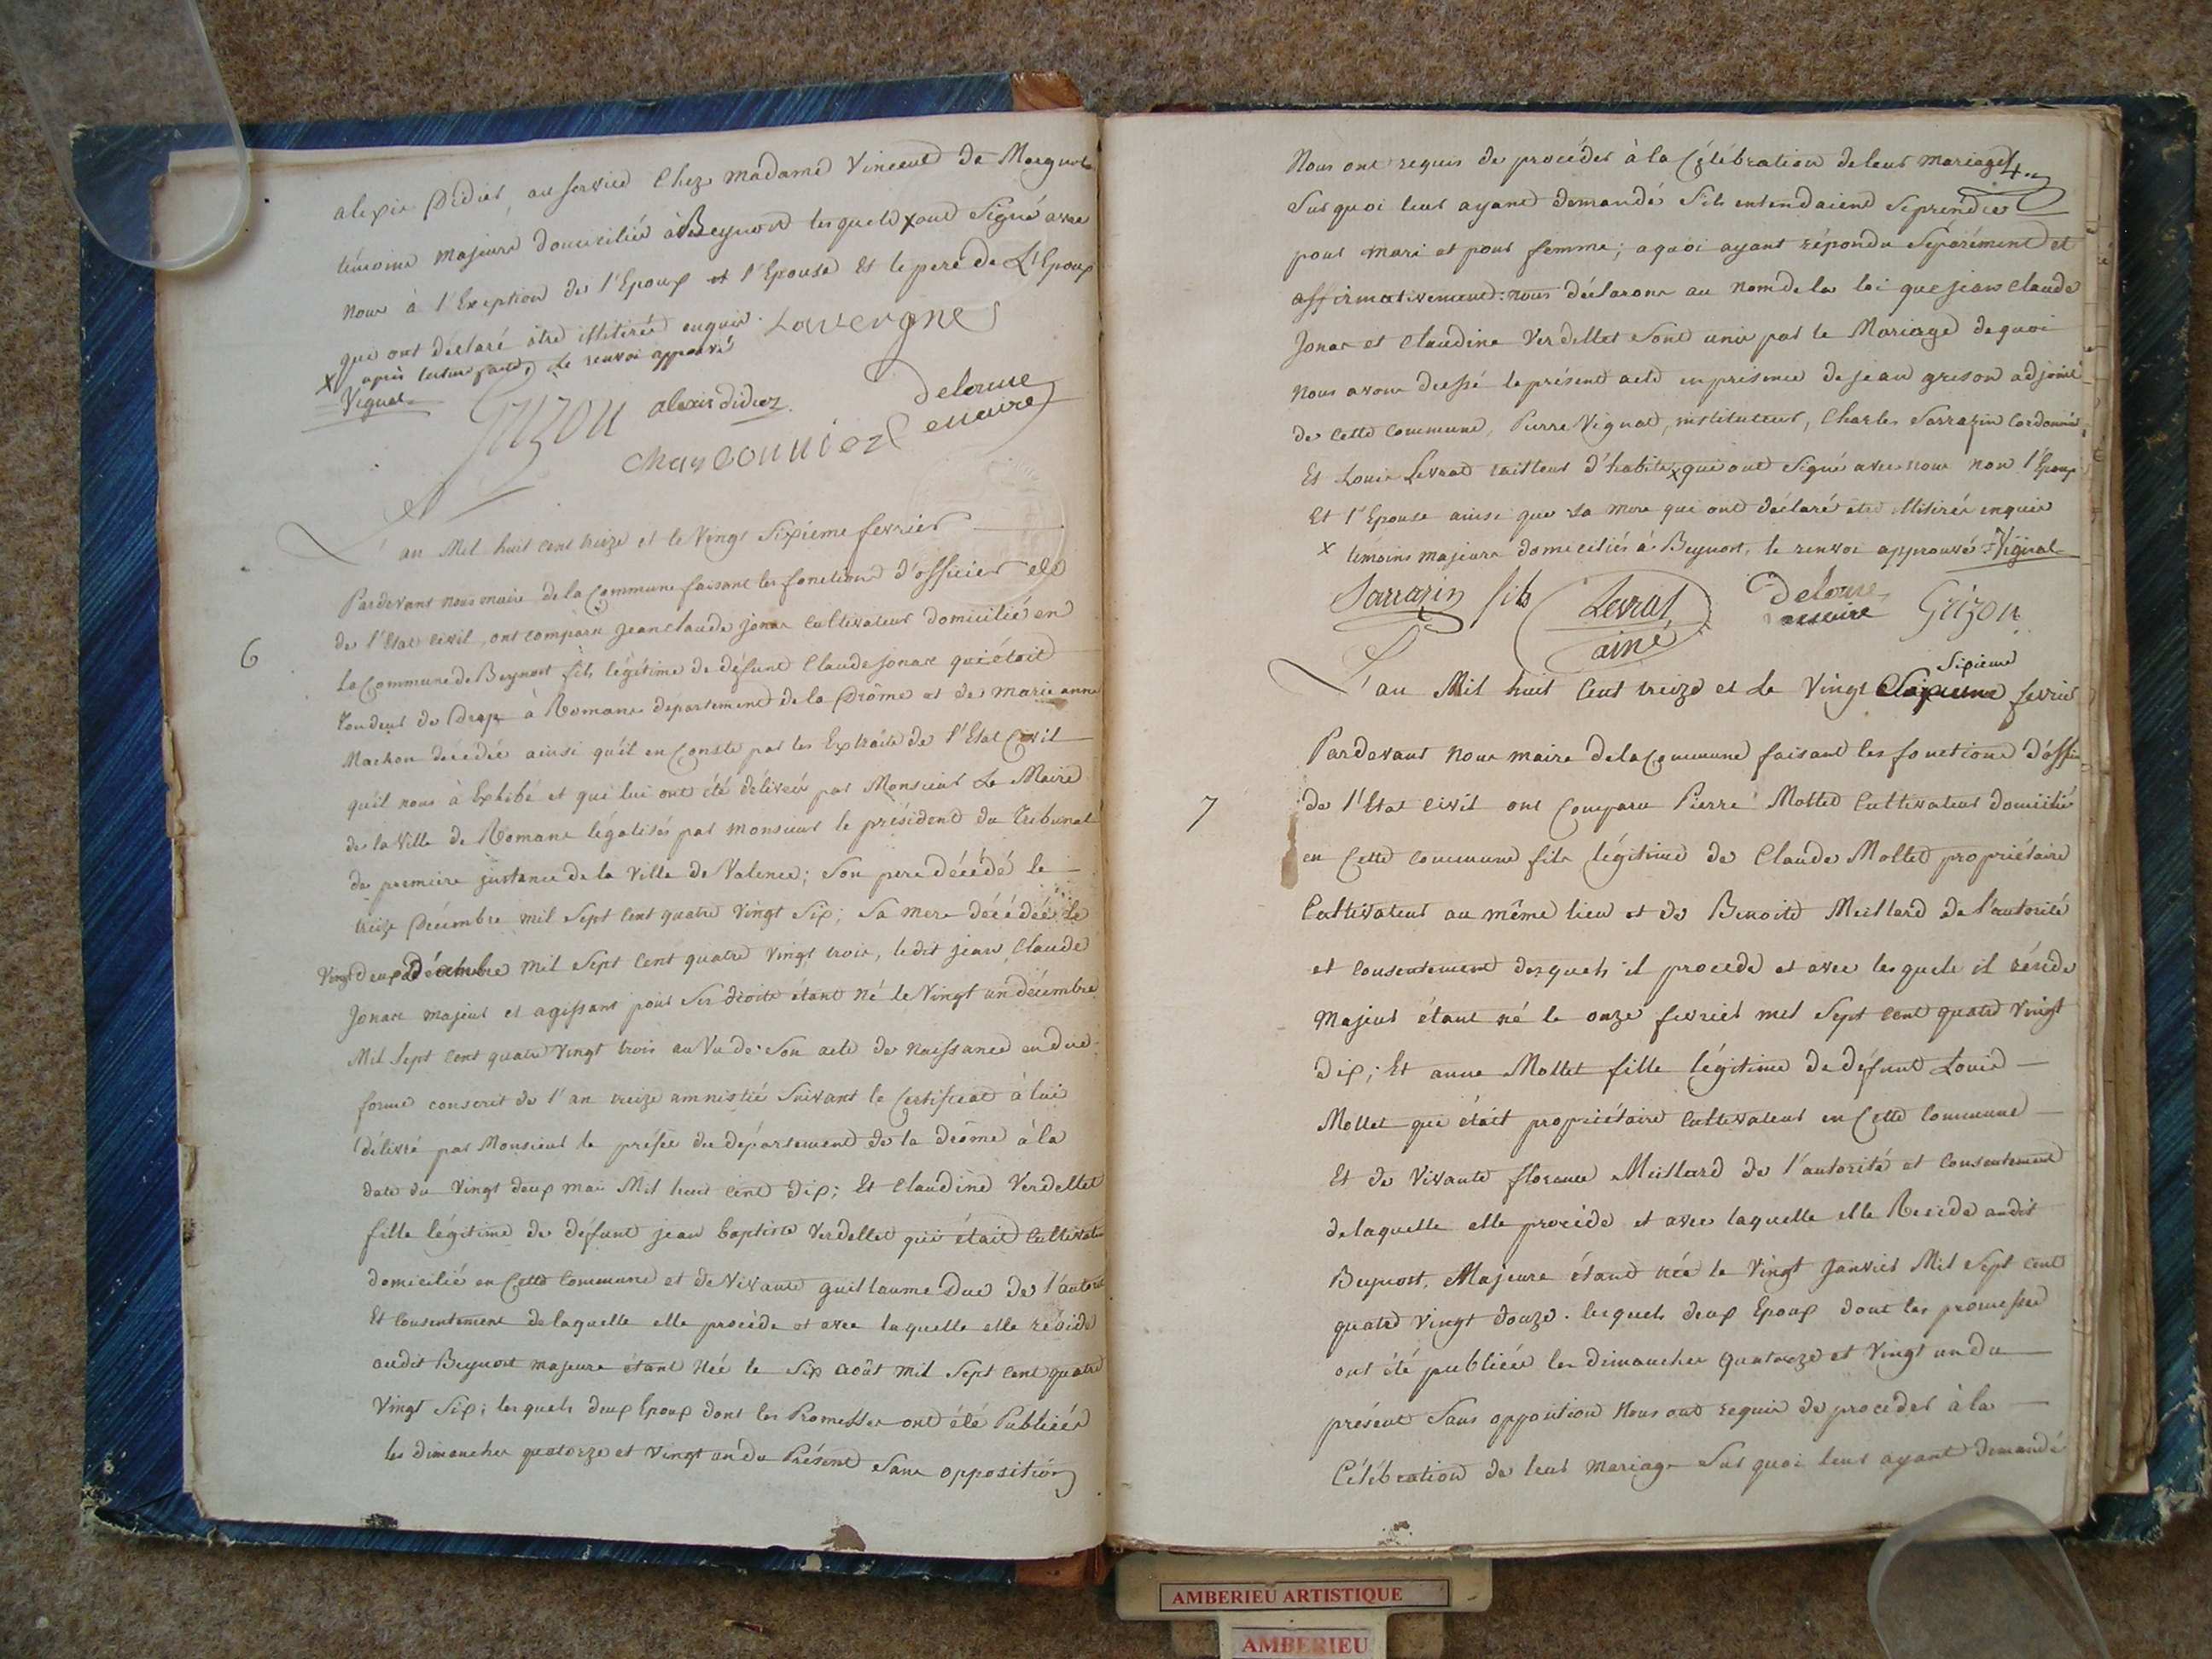 alexis Didier, au service Chez madame Vincent de
témoins majeurs domiciliés à Beynost lesquels x ont Signé avec
nous à l'Exception de l'Epoux et l'Epouse Et le pere de L'Epoux
qui ont déclaré être illitérés enquis. Lavergne
x après lecture faite, le renvoi approuvé
Vignal
Grizon alexis didier Delorme maire
L'an Mil huit cent treize et le Vingt Sixieme fevrier
Pardevant nous maire de la Commune faisant les fonctions d'officier
6
de l'Etat civil, ont comparu jean claude jonac Cultivateur domicilié en
La Commune de Beynost fils légitime de défunt Claude jonac qui étoit
Tondeur de Drap à Romans département de la Drôme et de Marie anne
Machon décédée ainsi qu'il en Conste par les Extraits de l'Etat Civil
qu'il nous à Exhibé et qui lui ont été délivrés par Monsieur Le Maire
de la Ville de Romans légalisés par monsieur le président du Tribunal
de premiere instance de la Ville de Valence; Son pere décédé le
treize Décembre mil Sept cent quatre Vingt Six; Sa mere décédée Le
Vingt deux Décembre mil Sept cent quatre Vingt trois, ledit jean Claude
Jonac majeur et agissant pour Ses droits étant né le Vingt un décembre
Mil Sept cent quatre Vingt trois au Vu de Son acte de naissance en due
forme conscrit de l'an treize amnistié Suivant le Certificat à lui
délivré par Monsieur le préfet du département de la drôme à la
date du Vingt deux mai Mil huit cent dix; Et Claudine Verdellet
fille légitime de défunt jean baptiste Verdellet qui était Cultivateur
domicilié en Cette Commune et de Vivante guillaume Duc de l'autorité
Et Consentement de laquelle elle procède et avec laquelle elle réside
audit Beynost majeure étant Née le Six août mil Sept cent quatre
Vingt Six; lesquels deux Epoux dont les Promesses ont été Publiées
les dimanches quatorze et Vingt un du Présent Sans opposition
Nous ont requis de procéder à la Célébration de leur mariage
Sur quoi leur ayant demandé S'ils entendaient Se prendre
pour mari et pour femme; a quoi ayant répondu Séparément et
affirmativement: nous déclarons au nom de la loi que jean Claude
Jonac et Claudine Verdellet Sont unis par le Mariage de quoi
Nous avons dressé le présent acte en présence de jean grison adjoint
de Cette Commune, Pierre Vignal, instituteur, Charles Sarrazin Cordonnier
Et Louis Levrat tailleur d'habits x qui ont Signé avec nous non l'Epoux
Et l'Epouse ainsi que Sa mere qui ont déclaré être illitérés enquis
x témoins majeurs domiciliés à Beynost, le renvoi approuvé Vignal
Sarrazin fils Levrat ainé Delorme maire Grizon
Sixieme
L'an Mil huit Cent treize et le Vingt fevrier
Pardevant Nous maire de la Commune faisant les fonctions d'officier
7
de l'Etat Civil ont Comparu Pierre Mollet Cultivateur domicilié
en Cette commune fils légitime de Claude Mollet propriétaire
Cultivateur au même lieu et de Benoite Meillard de l'autorité
et Consentement desquels il procede et avec lesquels il réside
majeur étant né le onze fevrier mil Sept cent quatre Vingt
dix; Et anne Mollet fille légitime de défunt Louis
Mollet qui était propriétaire Cultivateur en Cette Commune
Et de Vivante florence Meillard de l'autorité et Consentement
de laquelle elle procède et avec laquelle elle Reside audit
Beynost, Majeure étant née le Vingt Janvier Mil Sept cent
quatre Vingt douze. lesquels deux Epoux dont les promesses
ont été publiées les dimanches quatorze et Vingt un du
présent Sans opposition Nous ont requis de procéder à la
Célébration de leur mariage Sur quoi leur ayant demandé
AMBERIEU ARTISTIQUE
AMBERIEU